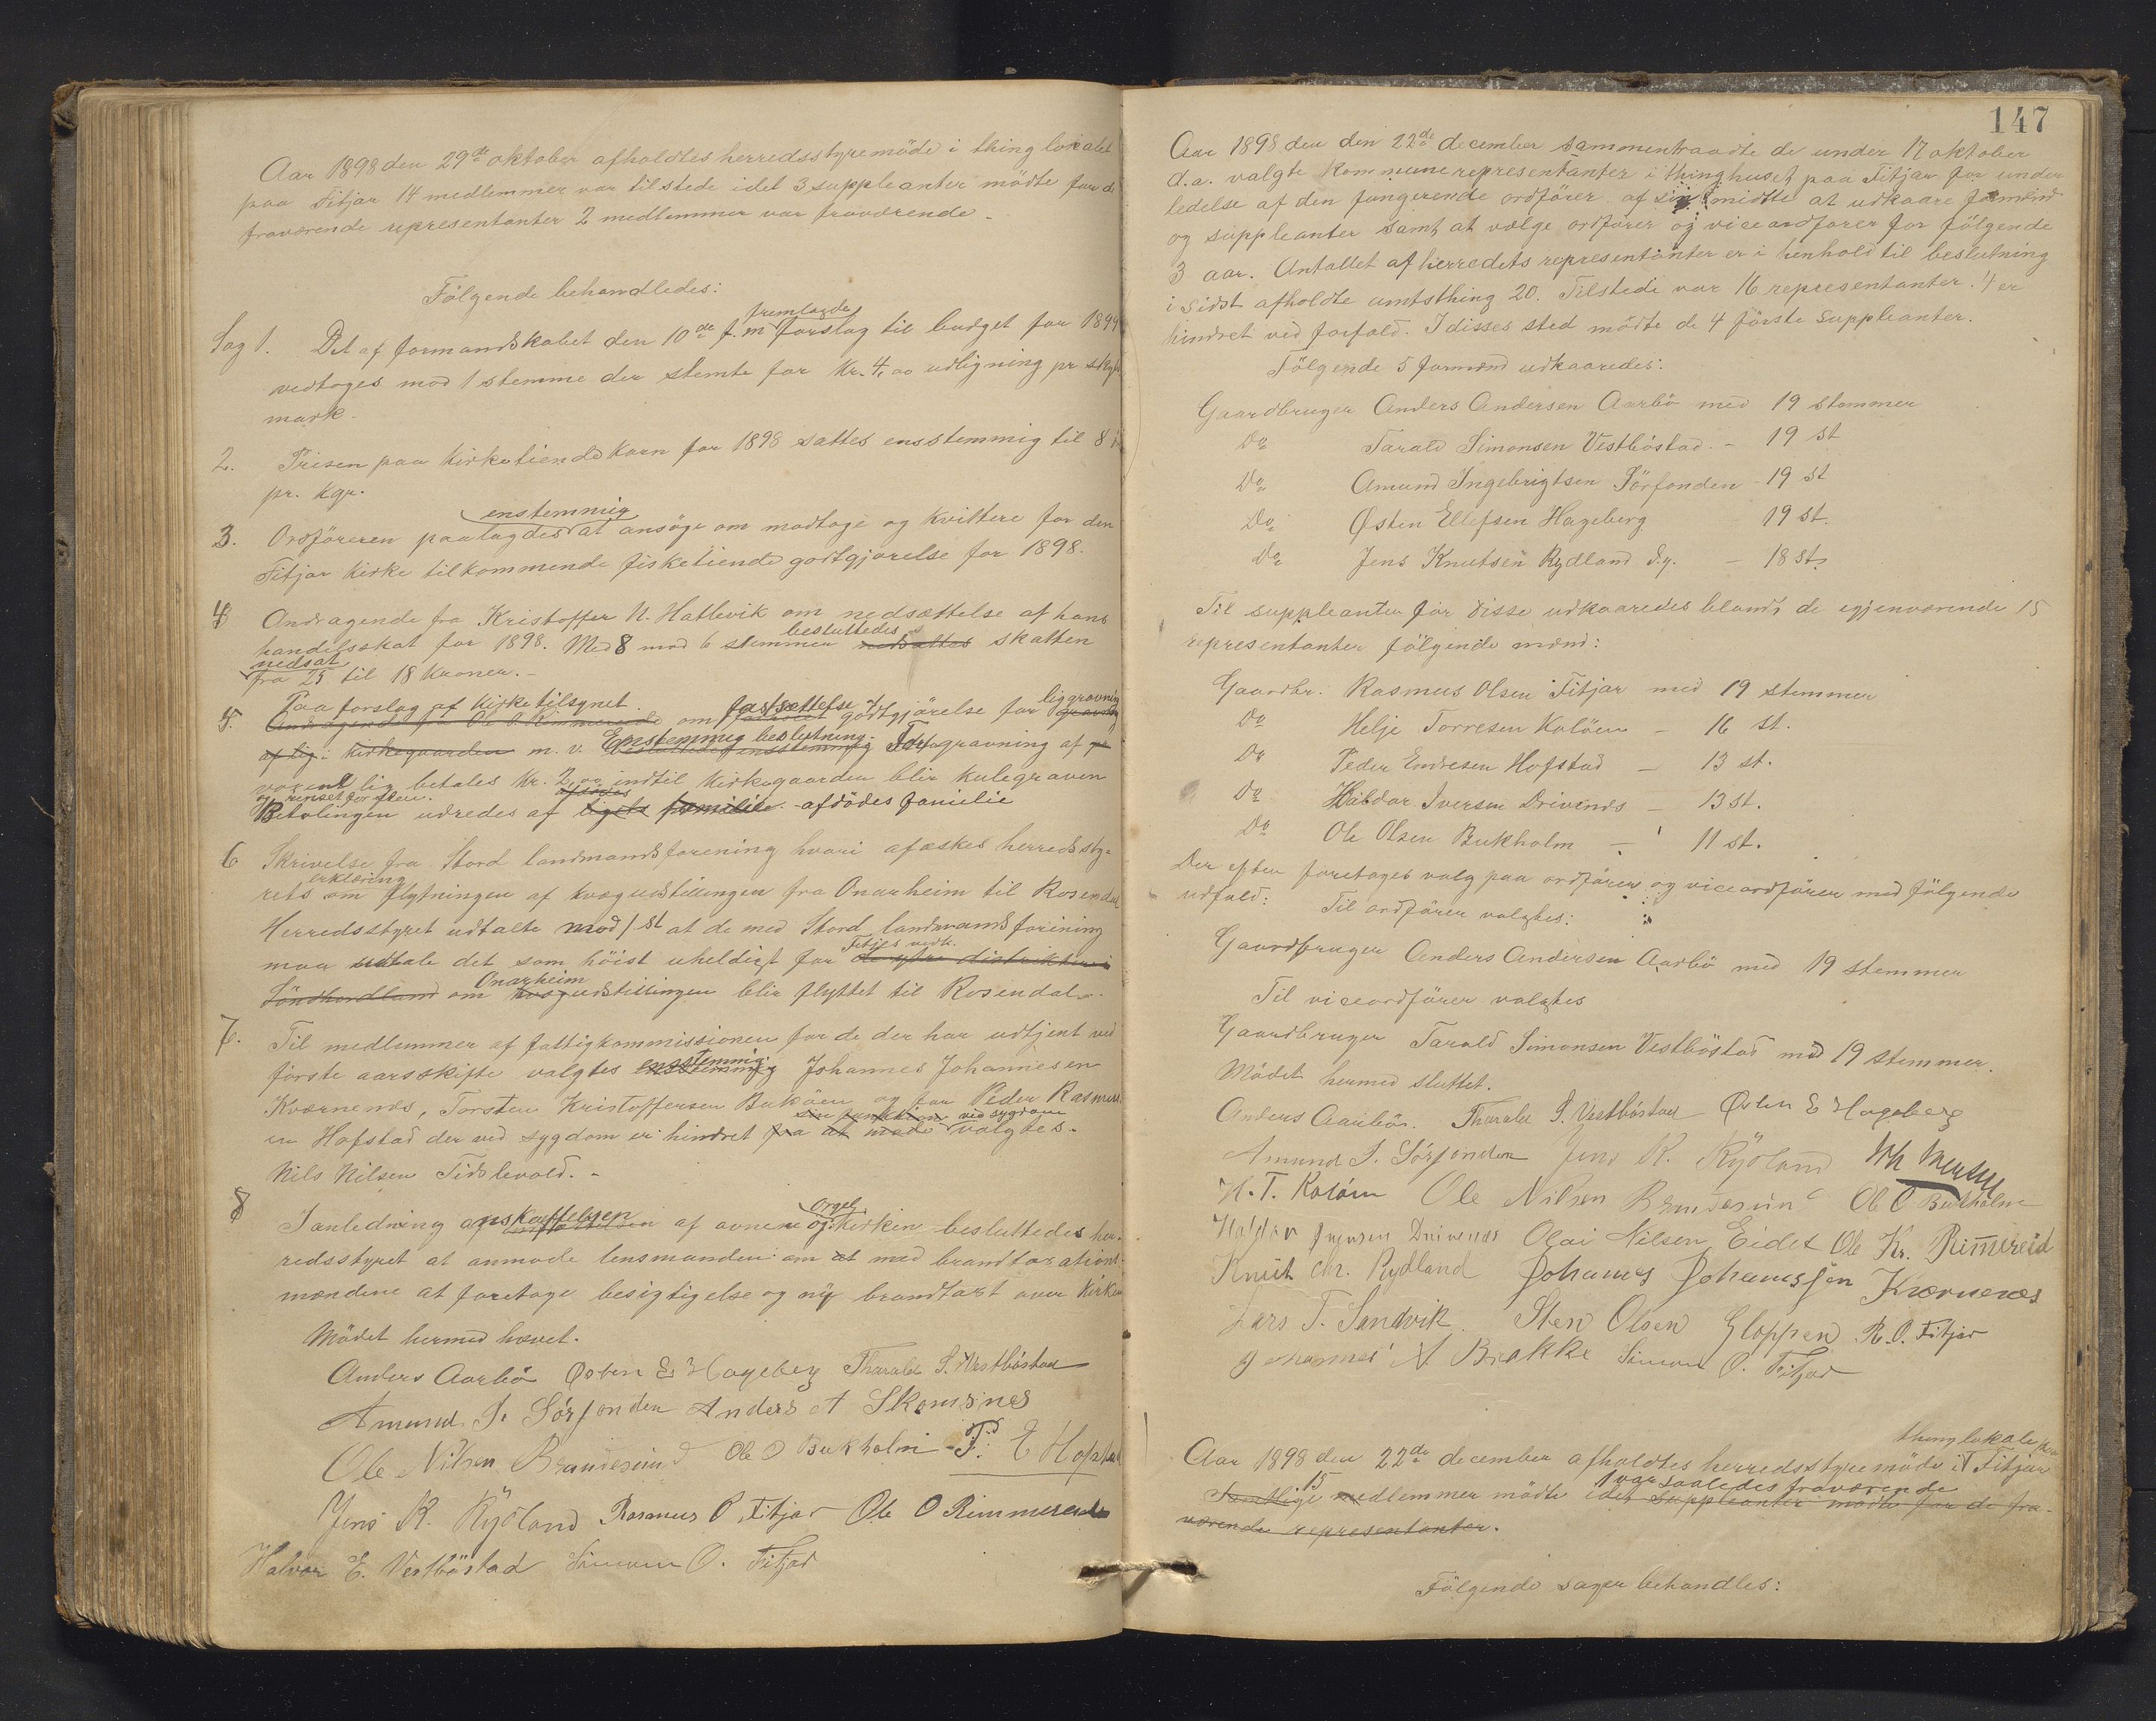 Aar 1898 den 29de oktober afholdtes herredsstyremöde i thinglokalet
paa Fitjar 14 medlemmer var tilstede idet 3 suppleanter mödte for de
fraværende representanter 2 medlemmer var fraværende.
Fölgende behandledes:
fremlagde
Sag 1. Det af formandskabet den 10de f.m forslag til budget for 1899
vedtoges mod 1 stemme der stemte for Kr. 4,00 udligning pr skyld
mark.
2. Prisen paa Kirketiendekorn for 1898 sattes ensstemmig til 8
pr. Kgr.
enstemmig
3. Ordföreren paalagdes at ansöge om modtage og kvittere for den
Fitjar kirke tilkommende fisketiende godtgjörelse for 1898.
4 Andragende fra Kristoffer N. Hatlevik om nedsættelse af hans
handelsskat for 1898. Med 8 mod 6 stemmer besluttedes nedsattes skatten
nedsat
fra 25 til 18 kroner.
Paa forslag af Kirketilsynet fastsættelse af liggravning
5. Andragende fra Ole O. Rimmereide om godtgjörelse for
af lig i kirkegaarden m. v. Enstemmig beslutning: For gravning af
voxent lig betales Kr. 2,00 indtil Kirkegaarden blir kulegraven
og renset for sten. afdödes
Betalingen udredes af ligets familie. afdödes familie
6 Skrivelse fra Stord landmandsforening hvori afæskes herredssty-
erklæring
rets om flytningen af kvægudstillingen fra Onarheim til Rosendal
Herredsstyret udtalte mod 1 st at de med Stord landmandsforening
Fitjes vedk.
maa udtale det som höist uheldigt for de ytre distrikter i
Onarheim
Söndhordland om kvægudstillingen blir flyttet til Rosendal.
7. Til medlemmer af fattigkommissionen for de der har udtjent ved
förste aarsskifte valgtes ensstemmig Johannes Johannesen
Kværnenes, Torsten Kristoffersen Buköen og for Peder Rasmus
sin funktion ved sygdom
en Hofstad der ved sygdom er hindret fra at möde valgtes.
Nils Nilsen Tislevold.
orgel
8 I anledning anskaffelsen af ovnene og i kirken besluttedes her-
redsstyret at anmode lensmanden om at med brandtaxations-
mændene at foretage besigtigelse og ny brandtaxt over Kirken
Mödet hermed hævet.
Anders Aarbö Østen E Hageberg Tharald S. Vestböstad
Amund I. Sörfonden Anders A Skomsnes
Ole Nilsen Brandesund Ole O Bukholm P. E Hofstad
Jens K. Rydland Rasmus O Fitjar Ole O Rimmereide
Halvor E. Vestböstad Simon O. Fitjar
147
Aar 1898 den den 22de december sammentraadte de under 17 oktober
d.a. valgte kommunerepresentanter i thinghuset paa Fitjar for under
ledelse af den fungerende ordförer af sin midte at udkaare formænd
og suppleanter samt at vælge ordförer og viceordförer for fölgende
3 aar. Antallet af herredets representanter er i henhold til beslutning
i sidst afholdte amtsthing 20. Tilstede var 16 representanter. 4 er
hindret ved forfald. I disses sted mödte de 4 förste suppleanter.
Fölgende 5 formænd udkaaredes:
Gaardbruger Anders Andersen Aarbö med 19 stemmer
Do Tarald Simonsen Vestböstad - 19 st
Do Amund Ingebrigtsen Sörfonden - 19 st
Do Østen Ellefsen Hageberg 19 st.
Do Jens Knutsen Rydland d.y. - 18 st.
Til suppleanter for disse udkaaredes blandt de igjenværende 15
representanter fölgende mænd:
Gaardbr. Rasmus Olsen Fitjar med 19 stemmer
Do Helje Torresen Kolöen - 16 st.
Do Peder Endresen Hofstad - 13 st.
Do Haldor Iversen Drivenes - 13 st.
Do Ole Olsen Bukholm - 11 st.
Der efter foretoges valg paa ordförer og viceordförer med fölgende
udfald: Til ordförer valgtes:
Gaardbruger Anders Andersen Aarbö med 19 stemmer
Til viceordförer valgtes
Gaardbruger Tarald Simonsen Vestböstad med 19 stemmer.
Mödet hermed sluttet.
Anders Aarbö. Tharald S. Vestböstad Østen E Hageberg
Amund I. Sörfonden Jens K. Rydland
H. T. Kolöen Ole Nilsen Brandesund Ole O Bukholm
Haldor Iversen Drivenes Olai Nilsen Eidet Ole Kr. Rimmereid
Knut Chr. Rydland Johannes Johannessen Kværnenes
Lars T. Sandvik Sten Olsen Gloppen R. O. Fitjar
Johannes N Brakke Simon O. Fitjar
thinglokale paa
Aar 1898 den 22de december afholdtes herredsstyremöde i Fitjar
15 1 var saaledes fraværende
Samtlige medlemmer mödte idet suppleanter mödte for de fra-
værende representanter.
Fölgende sager behandles: